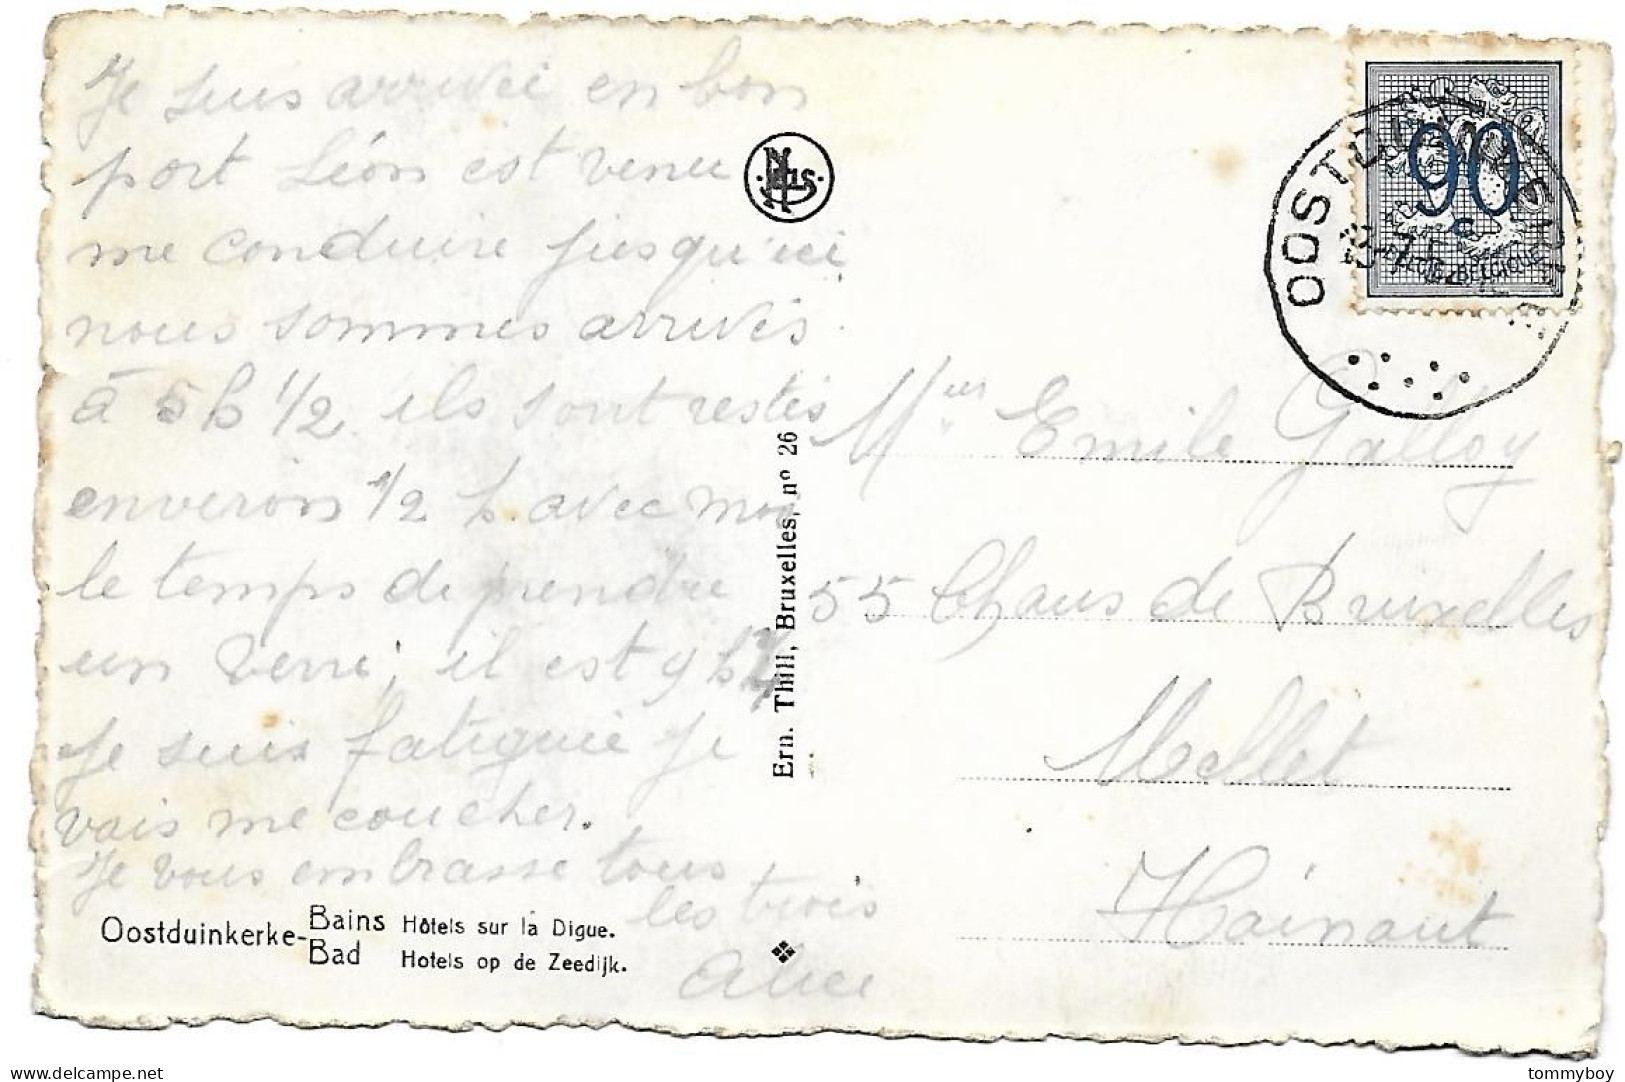 Je suis arrivée en bon
port Léon est venu
me conduire jusqu'ici
nous sommes arrivés
à 5 h 1/2 ils sont restés
environ 1/2 h. avec moi
le temps de prendre
un verre, il est 9 h
je suis fatiguée je
vais me coucher.
Je vous embrasse tous
les trois
Alice
Oostduinkerke-Bains Hôtels sur la Digue.
Oostduinkerke-Bad Hotels op de Zeedijk.
NELS
Ern. Thill, Bruxelles, n° 26
OOSTDUINKERKE
90
c
BELGIE-BELGIQUE
Emile Galloy
55 Chaus de Bruxelles
Mellet
Hainaut
delcampe.net
tommyboy